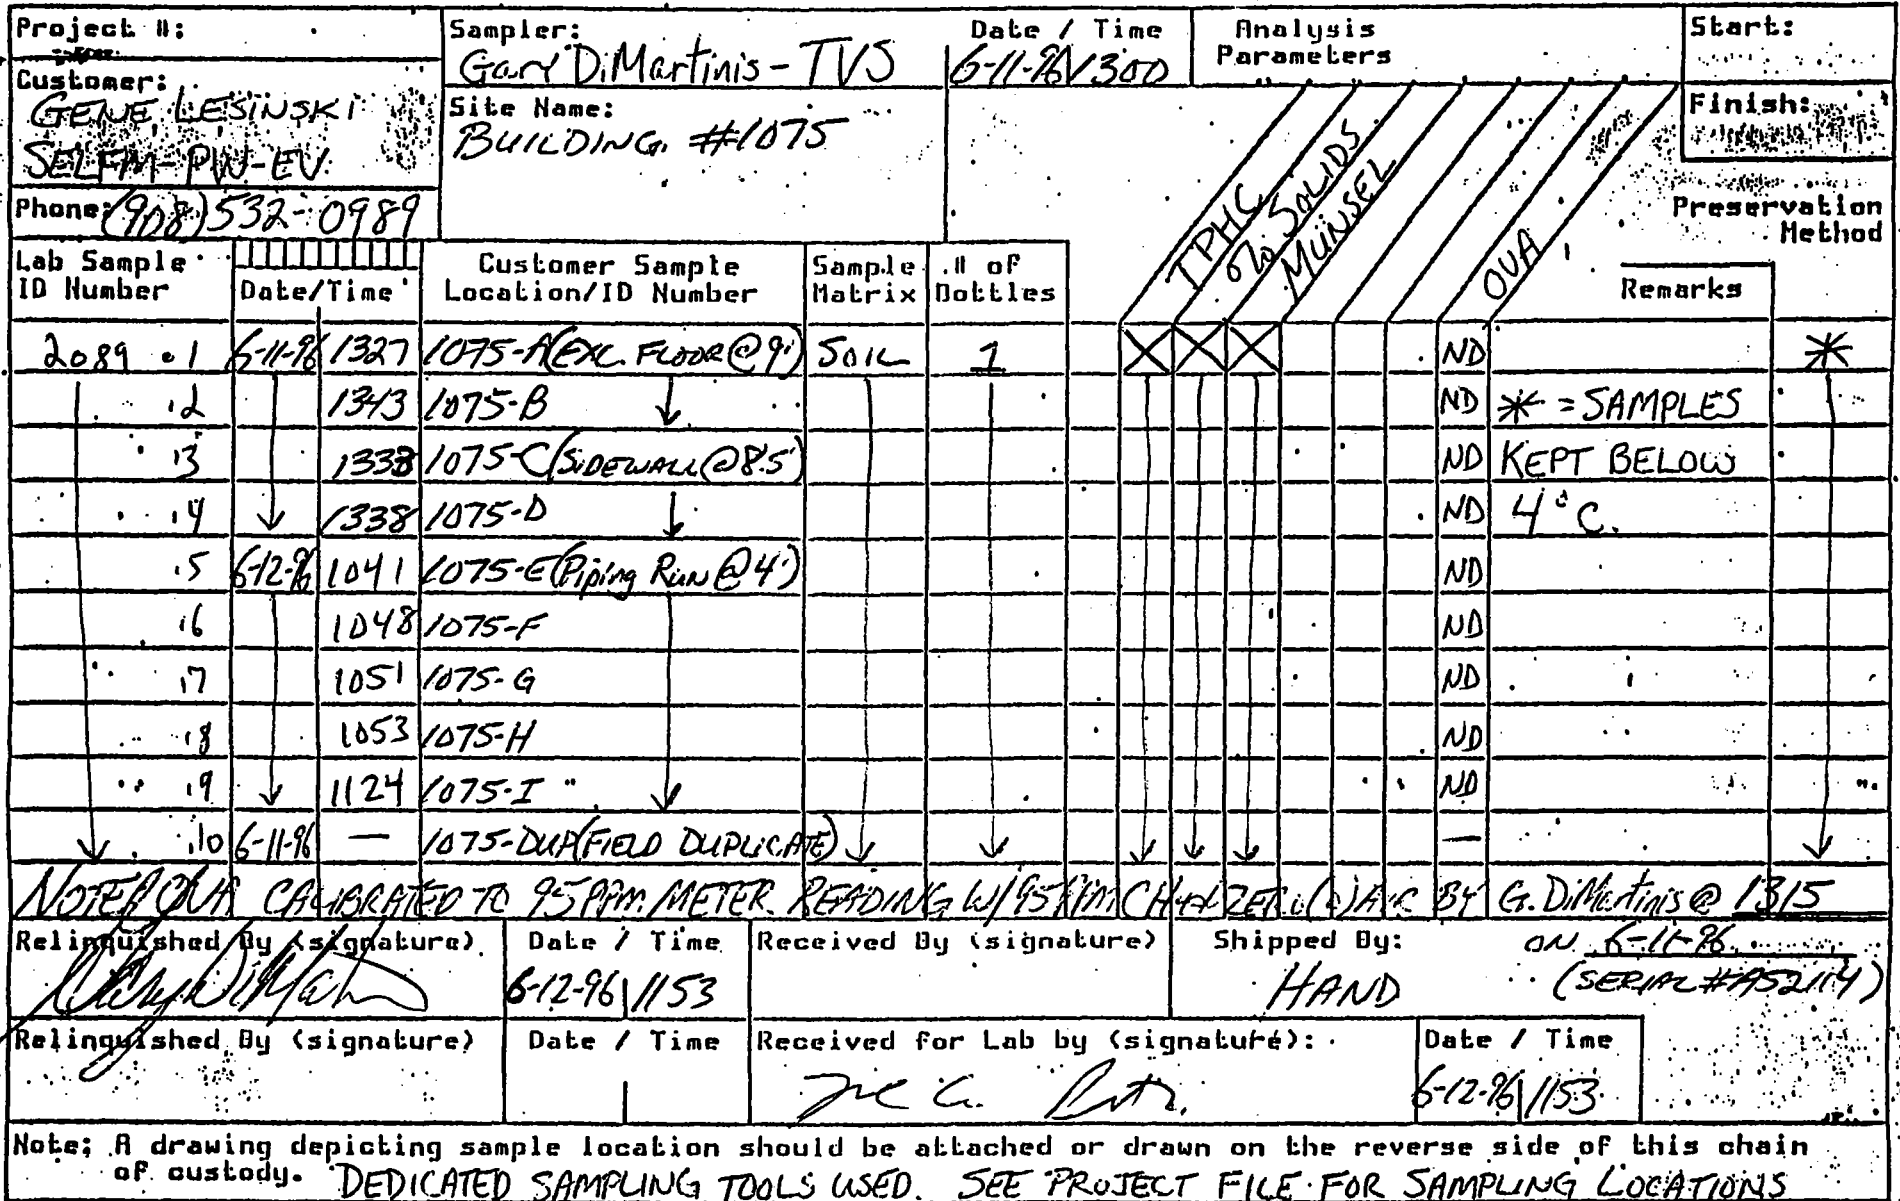 Project #:
Customer:
GENE LESINSKI
SELFM-PW-EV.
Phone: (908) 532-0989
Sampler:
Gary DiMartinis - TVS
Date / Time
6-11-96 / 1300
Site Name:
BUILDING. #1075
Analysis Parameters
TPHC
% SOLIDS
MUNSEL
OVA
Start:
Finish:
Preservation Method
Lab Sample ID Number Date/Time Customer Sample Location/ID Number Sample Matrix # of Bottles Remarks
2089 .1 6-11-96 1327 1075-A (EXC. FLOOR @ 9') SOIL 1 X X X ND *
.2 1343 1075-B ND * = SAMPLES
.3 1333 1075-C (SIDEWALL @ 8.5') ND KEPT BELOW
.4 1338 1075-D ND 4°C.
.5 6-12-96 1041 1075-E (Piping Run @ 4') ND
.6 1048 1075-F ND
.7 1051 1075-G ND
.8 1053 1075-H ND
.9 1124 1075-I " ND
.10 6-11-96 — 1075-DUP (FIELD DUPLICATE) —
NOTE: OVA CALIBRATED TO 95 PPM. METER READING W/ 95 PPM CH4 BY G. DiMartinis @ 1315
ON 6-11-96
(SERIAL #A52114)
Relinquished By (signature) Date / Time Received By (signature) Shipped By:
6-12-96 | 1153 HAND
Relinquished By (signature) Date / Time Received for Lab by (signature): Date / Time
6-12-96 | 1153
Note: A drawing depicting sample location should be attached or drawn on the reverse side of this chain
of custody. DEDICATED SAMPLING TOOLS USED. SEE PROJECT FILE FOR SAMPLING LOCATIONS